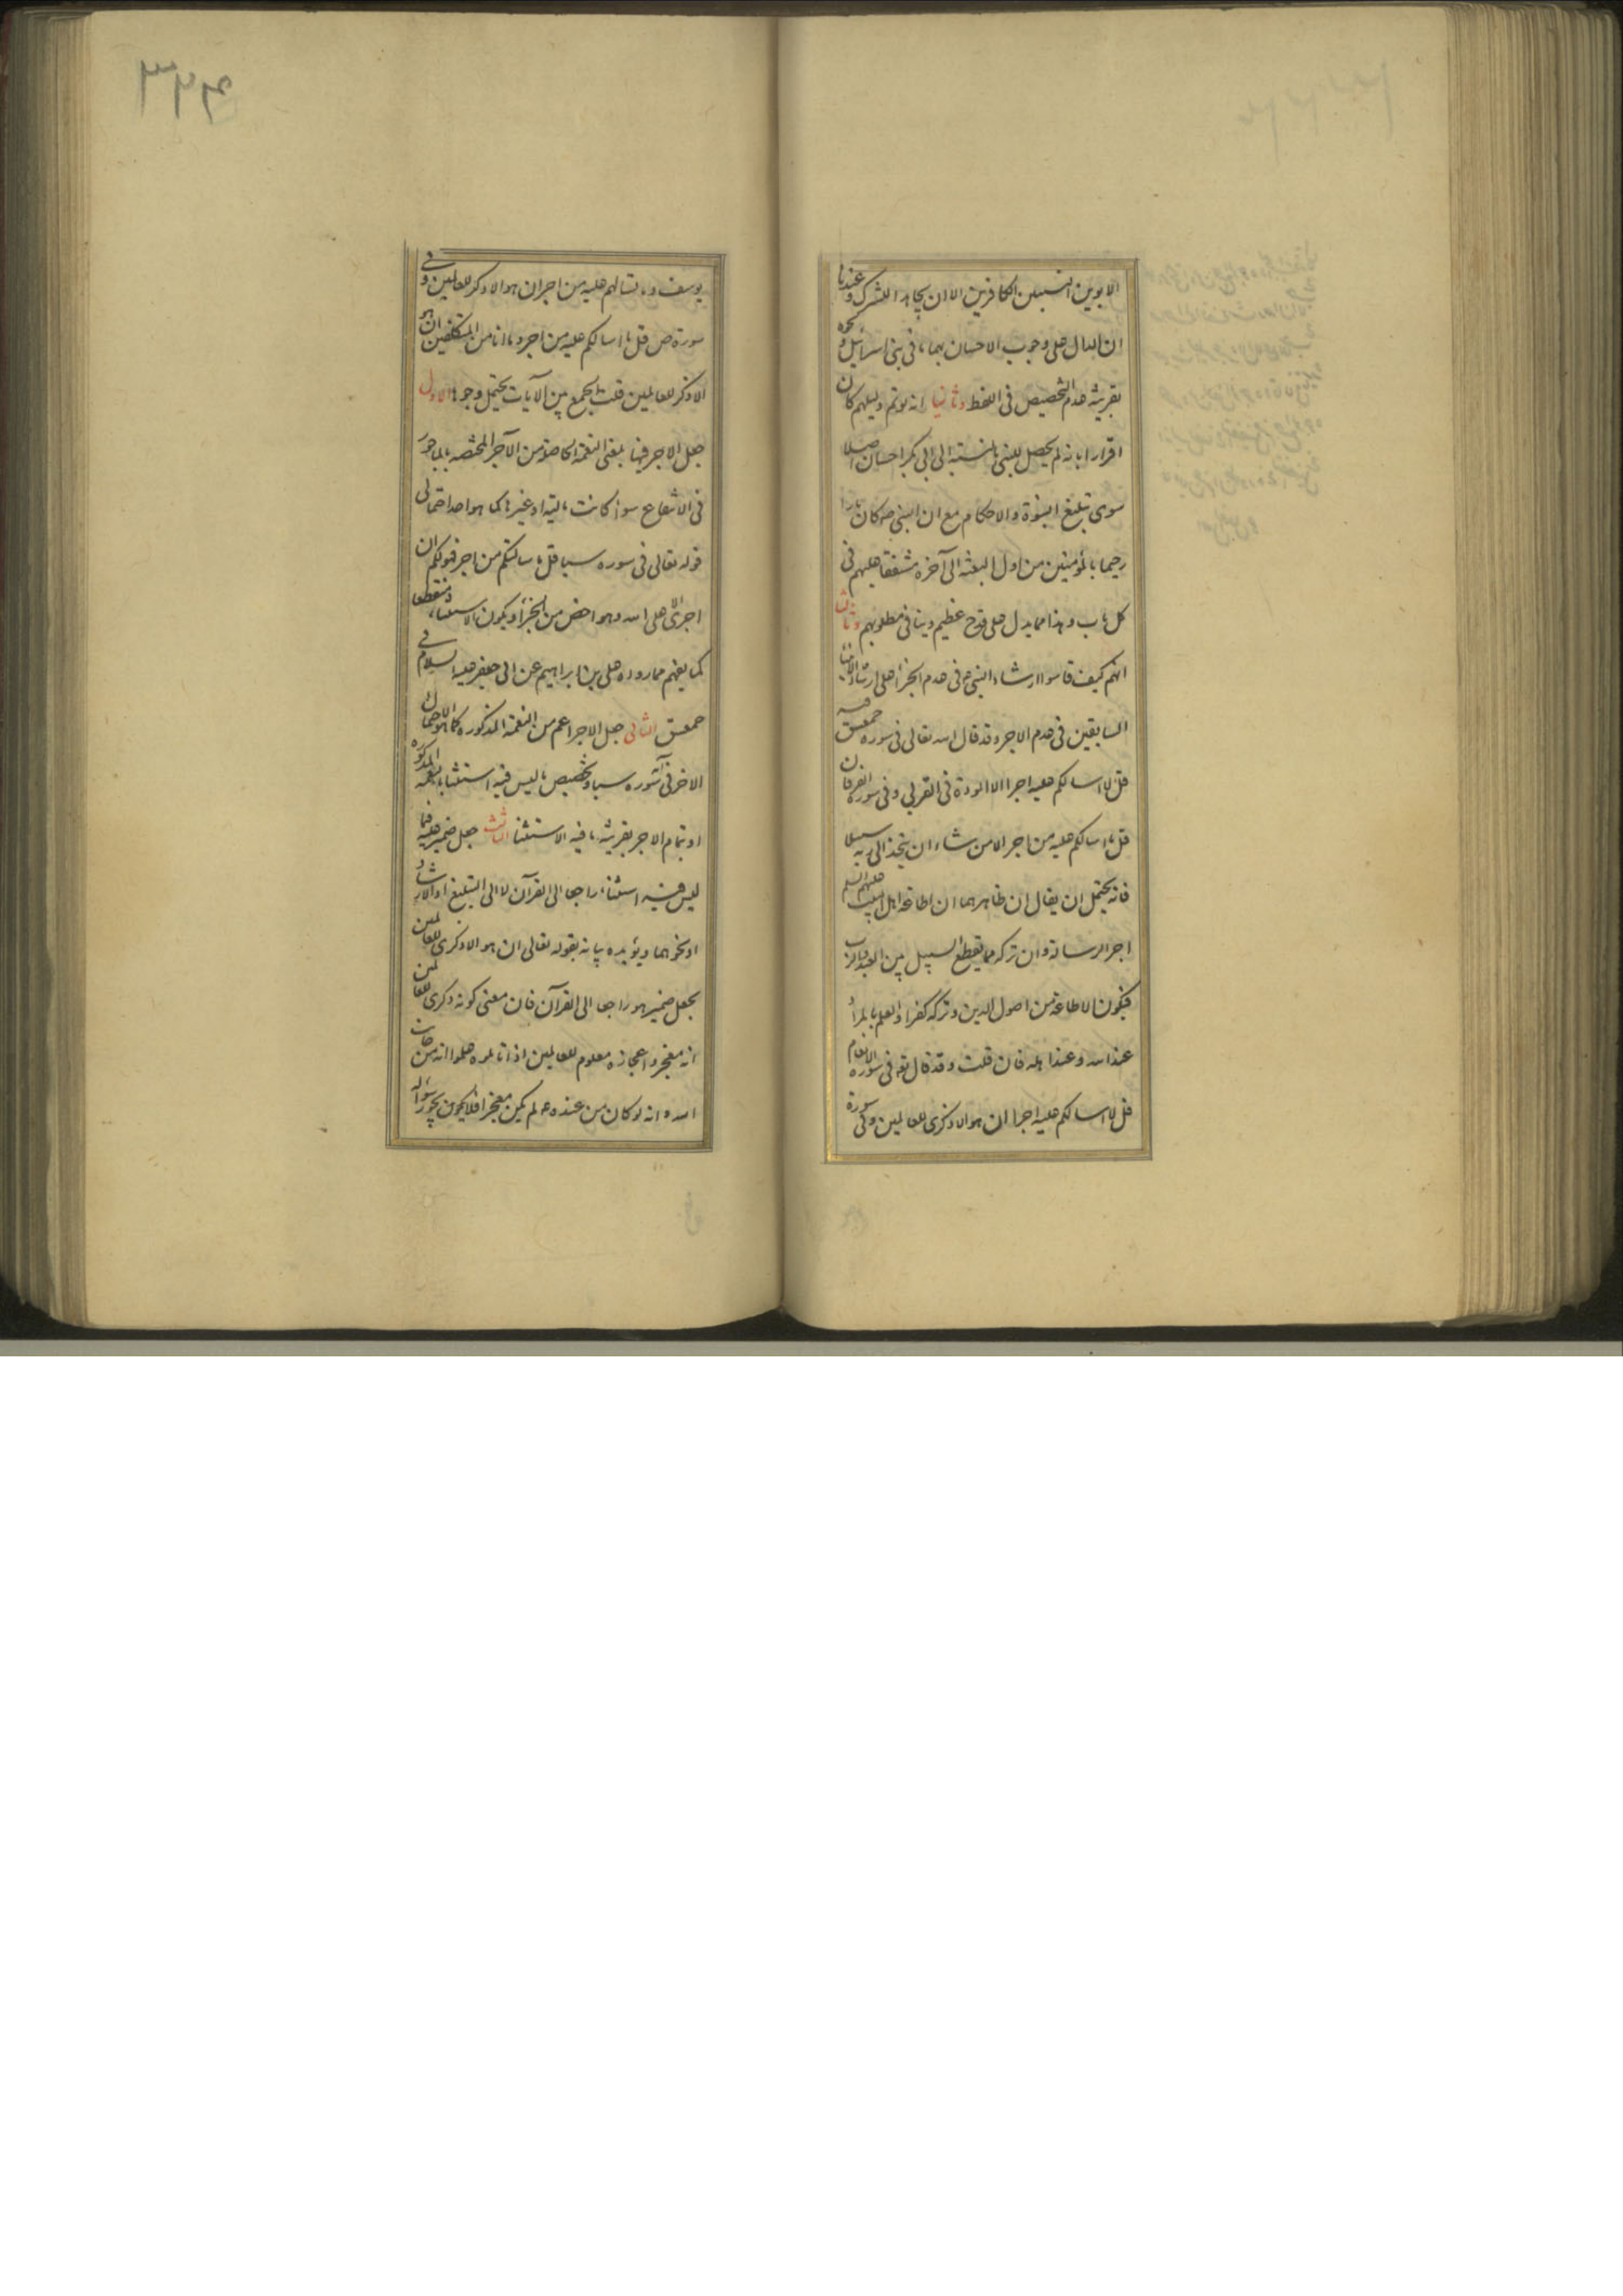 الابوين النسبيين الكافرين الا ان يجاهدا للشرك وعندنا
ان الدال على وجوب الاحسان بهما ما فى بنى اسرائيل ونحوه
بقرينة عدم التخصيص فى اللفظ وثانيا انه لو تم دليلهم كان
اقرارا بانه لم يحصل للنبى بالنسبة الى ابى بكر احسان اصلا
سوى تبليغ النبوة والاحكام مع ان النبى ص كان بارا
رحيما بالمؤمنين من اول البعثه الى آخره مشفقا عليهم فى
كل باب وهذا مما يدل على قدح عظيم وينافى مطلوبهم وثالثا
انهم كيف قاسوا ارشاد النبى ص فى عدم الجزاء على ارشاد الانبياء
السابقين فى عدم الاجر وقد قال الله تعالى فى سورة حمعسق
قل لا اسالكم عليه اجرا الا المودة فى القربى وفى سورة الفرقان
قل ما اسالكم عليه من اجر الا من شاء ان يتخذ الى ربه سبيلا
فانه يحتمل ان يقال ان ظاهرهما ان اطاعة اهل البيت عليهم السلم
اجر الرسالة وان تركه مما يقطع السبيل بين العبد والرب
فيكون الاطاعة من اصول الدين وتركه كفرا والعلم بالمراد
عند الله وعند اهله فان قلت وقد قال تع فى سورة الانعام
قل لا اسالكم عليه اجرا ان هو الا ذكرى للعالمين وفى سورة
٣٦٦
يوسف وما تسالهم عليه من اجر ان هو الا ذكر للعالمين وفى
سورة ص قل ما اسالكم عليه من اجر وما انا من المتكلفين ان هو
الا ذكر للعالمين قلت الجمع بين الآيات يحتمل وجوها الاول
جعل الاجر فيها بمعنى النعمة الحاصلة من الآجر المختصه بالماجور
فى الانتفاع سواء كانت مالية او غيرها كما هو احد احتمالى
قوله تعالى فى سوره سبا قل ما سالتكم من اجر فهو لكم ان
اجرى الا على الله وهو اخص من الجزاء ويكون الاستثناء منقطعا
كما يفهم مما رواه على بن ابراهيم عن ابى جعفر عليه السلام فى
حمعسق الثانى جعل الاجر اعم من النعمة المذكوره كما هو الاحتمال
الاخر فى آية سوره سبا وتخصيص ما ليس فيه استثنا بالنعمة المذكوره
او بتمام الاجر بقرينة ما فيه الاستثنا الثالث جعل ضمير عليه فيما
ليس فيه استثناء راجعا الى القرآن لا الى التبليغ او الارشاد
او نحوهما ويؤيده بيانه بقوله تعالى ان هو الا ذكرى للعالمين
بجعل ضمير هو راجعا الى القرآن فان معنى كونه ذكرى للعالمين
انه معجز واعجازه معلوم للعالمين اذا تاملوه علموا انه من جانب
الله وانه لو كان من عنده ص لم يكن معجزا فلا يكون بجور سؤاله